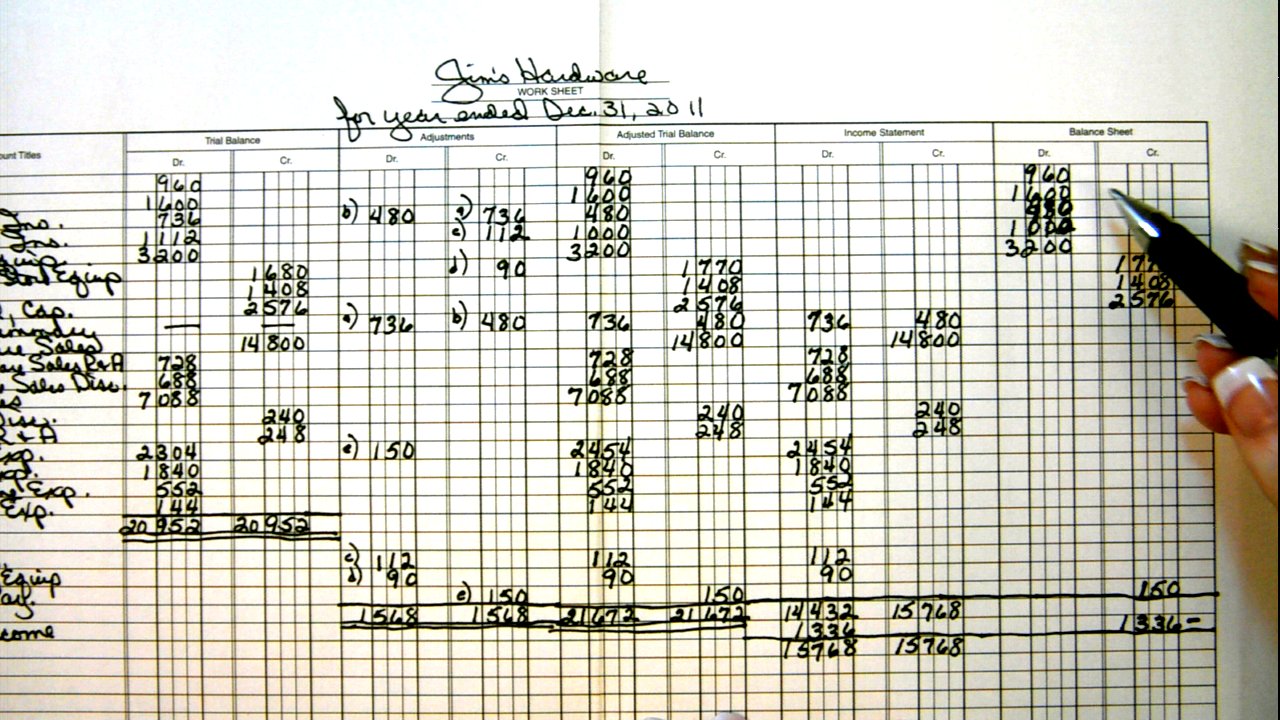 Jim's Hardware
WORK SHEET
for year ended Dec. 31, 2011
Trial Balance Adjustments Adjusted Trial Balance Income Statement Balance Sheet
unt Titles Dr. Cr. Dr. Cr. Dr. Cr. Dr. Cr. Dr. Cr.
960 960 960
1600 1600 1600
Ins. 736 b) 480 a) 736 480 480
Ins. 1112 c) 112 1000 1000
3200 3200 3200
Store Equip 1680 d) 90 1770
1408 1408 1408
Cap. 2576 2576 2576
— — a) 736 b) 480 736 480 736 480
Sales 14800 14800 14800
Sales R & A 728 728 728
Sales Disc. 688 688 688
7088 7088 7088
Disc. 240 240 240
R & A 248 248 248
Exp. 2304 e) 150 2454 2454
Exp. 1840 1840 1840
Exp. 552 552 552
Exp. 144 144 144
20952 20952
c) 112 112 112
Equip d) 90 90 90
Pay. e) 150 150 150
1568 1568 21672 21672 14432 15768
come 1336 1336 –
15768 15768